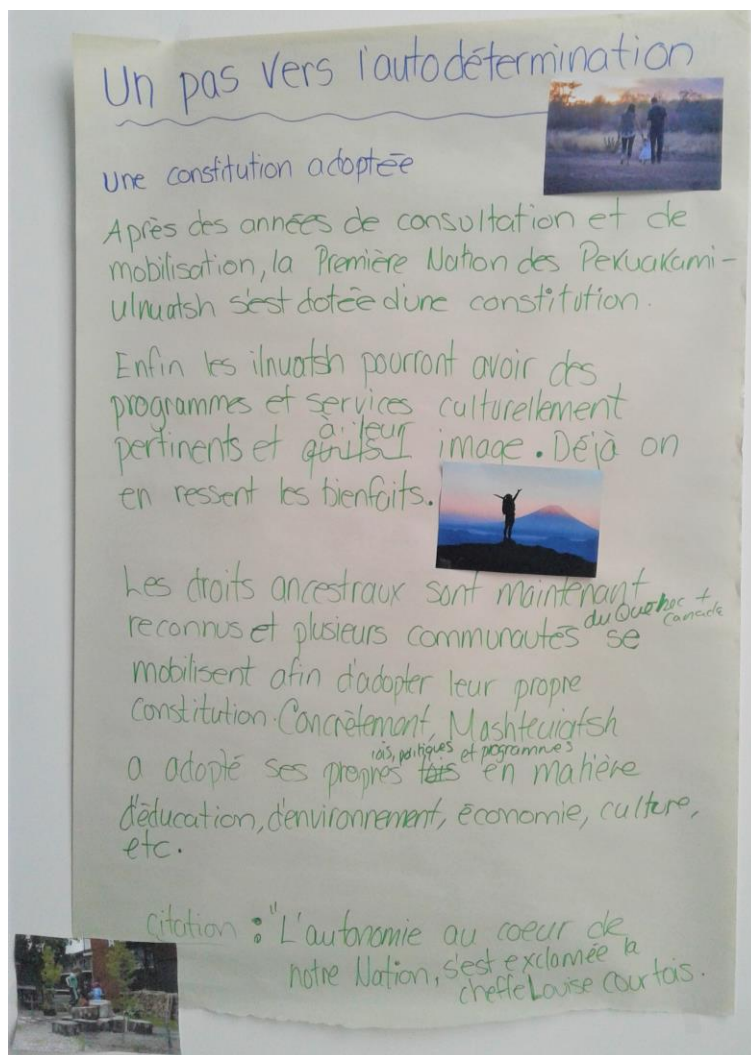 Un pas vers l'autodétermination
une constitution adoptée
Après des années de consultation et de
mobilisation, la Première Nation des Pekuakami-
ulnuatsh s'est dotée d'une constitution.
Enfin les ilnuatsh pourront avoir des
programmes et services culturellement
à leur
pertinents et image. Déjà on
en ressent les bienfaits.
Les droits ancestraux sont maintenant
du Québec + Canada
reconnus et plusieurs communautés se
mobilisent afin d'adopter leur propre
constitution. Concrètement, Mashteuiatsh
lois, politiques et programmes
a adopté ses propres lois en matière
d'éducation, d'environnement, économie, culture,
etc.
Citation : "L'autonomie au coeur de
notre Nation, s'est exclamée la
cheffe Louise Courtois.